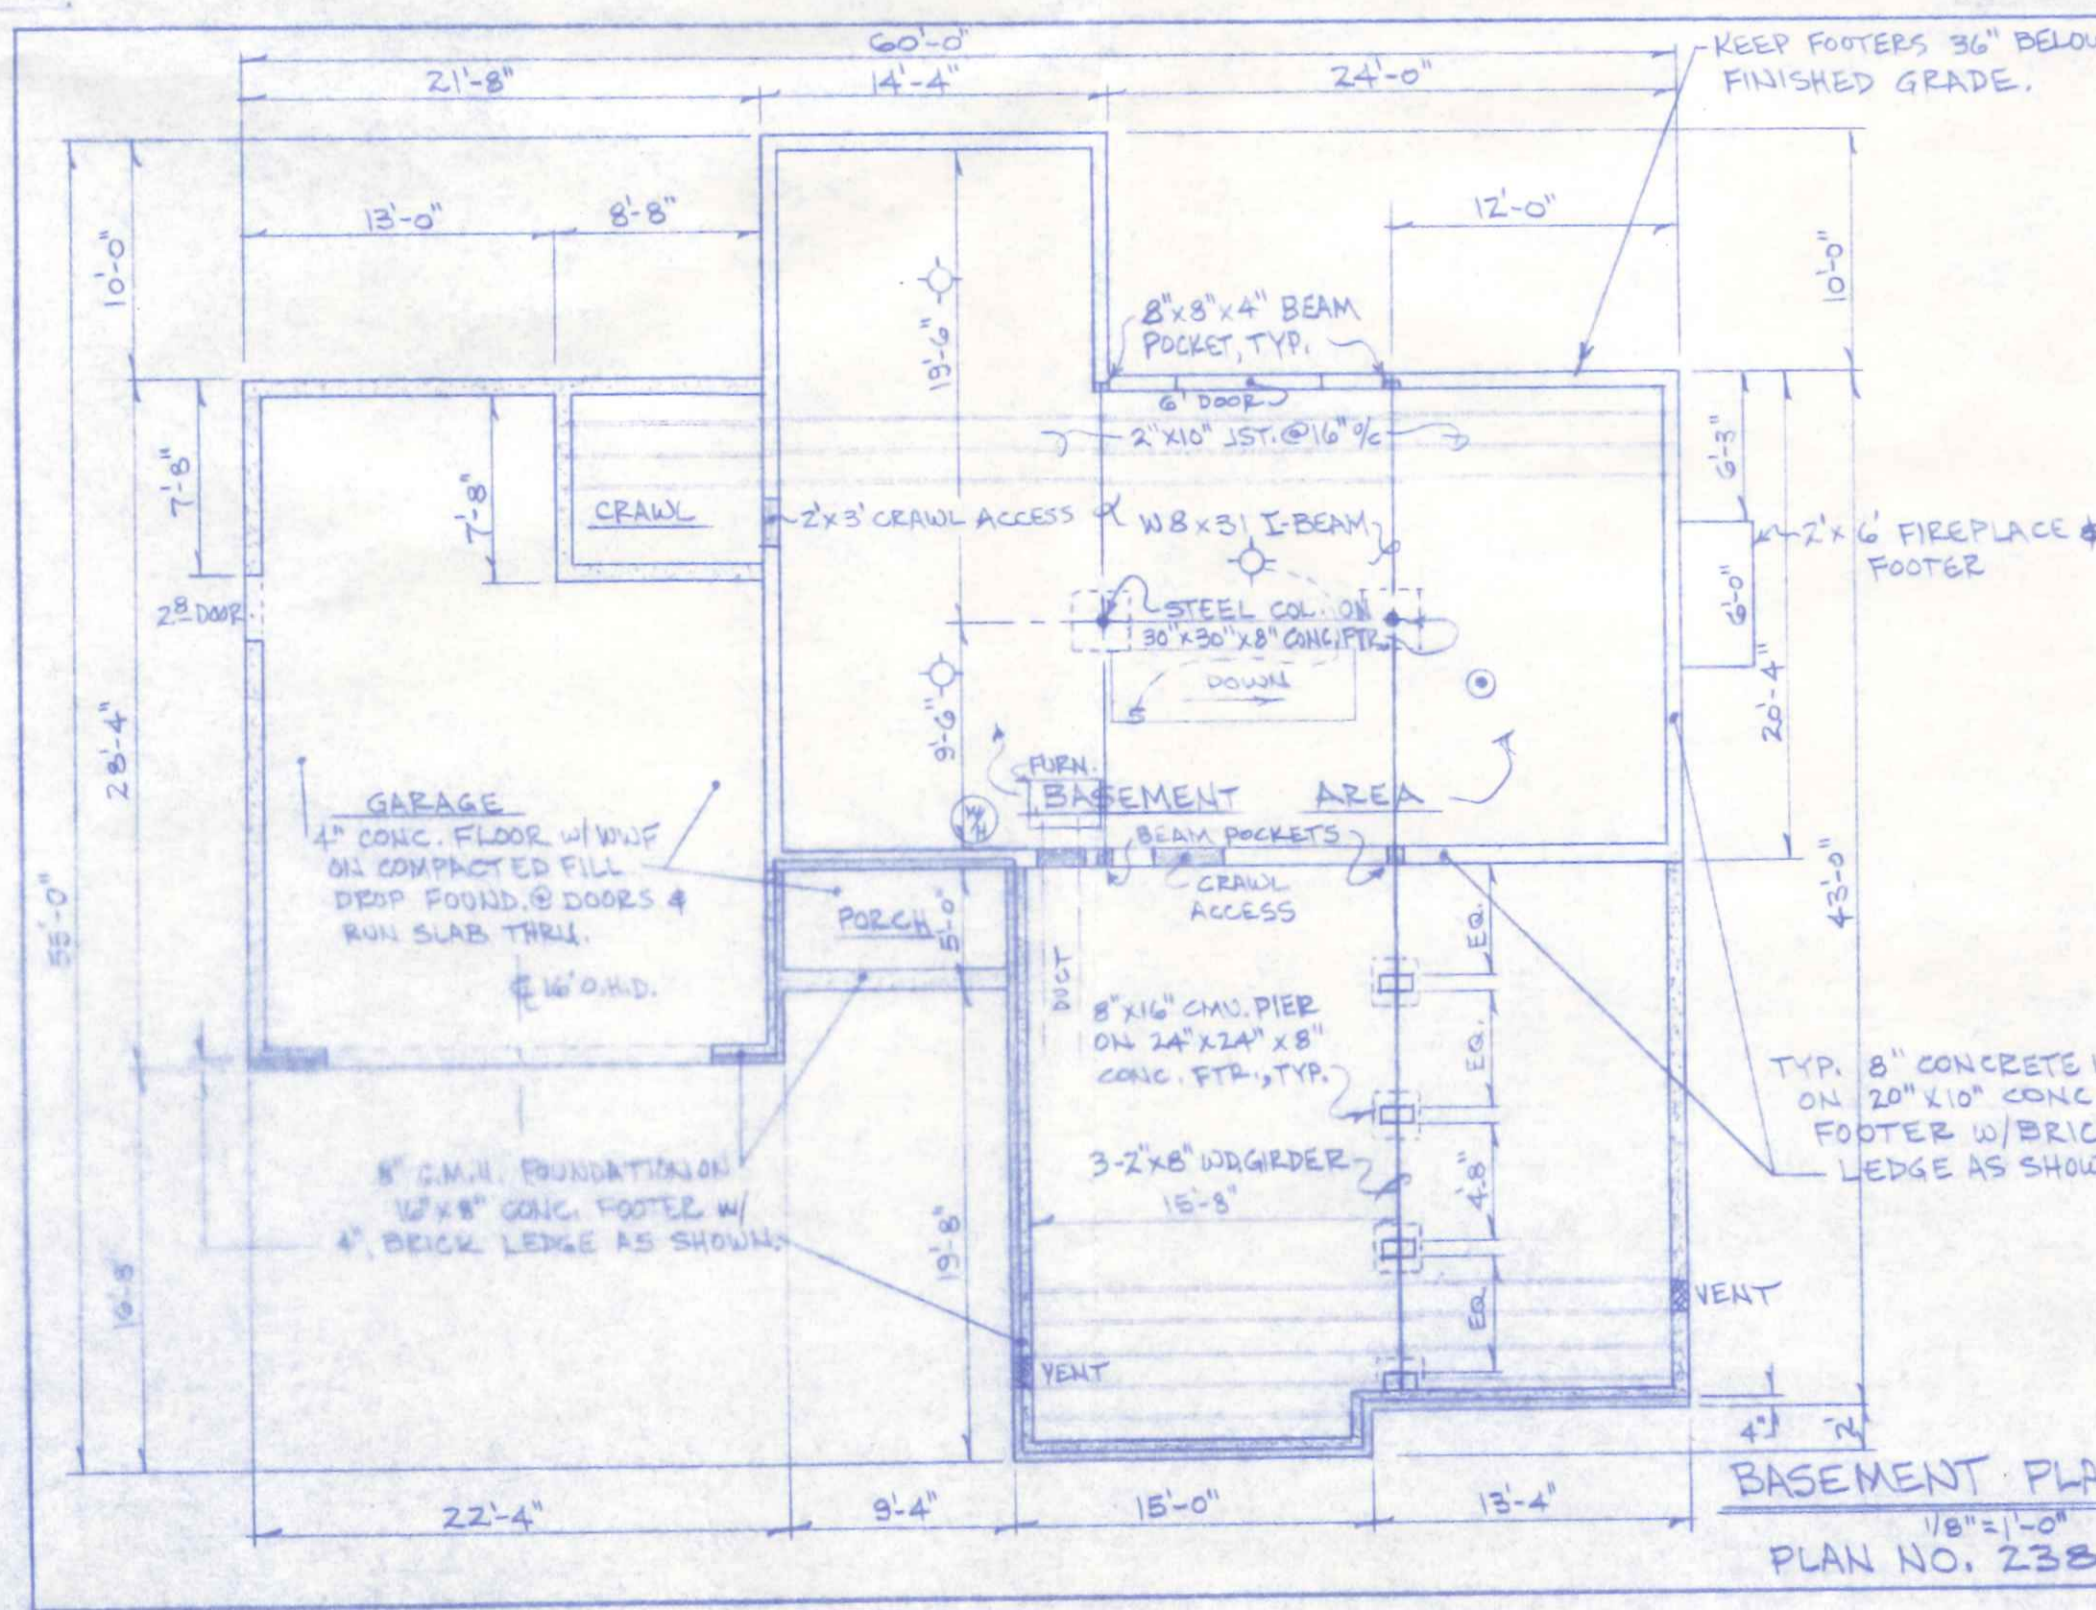 60'-0"
21'-8"
14'-4"
24'-0"
KEEP FOOTERS 36" BELOW
FINISHED GRADE.
13'-0"
8'-8"
12'-0"
10'-0"
10'-0"
19'-6"
8"x8"x4" BEAM
POCKET, TYP.
6' DOOR
2"x10" JST.@16" o/c
7'-8"
7'-8"
6'-3"
CRAWL
2'x3' CRAWL ACCESS
W8x31 I-BEAM
2'x6' FIREPLACE &
FOOTER
6'-0"
28 DOOR
STEEL COL. ON
30"x30"x8" CONC. FTR.
DOWN
9'-6"
20'-4"
28'-4"
FURN.
BASEMENT AREA
W/H
GARAGE
4" CONC. FLOOR W/WWF
ON COMPACTED FILL
DROP FOUND. @ DOORS &
RUN SLAB THRU.
℄ 16' O.H.D.
BEAM POCKETS
CRAWL
ACCESS
PORCH
5'-0"
55'-0"
43'-0"
EQ.
DUCT
8"x16" CMU. PIER
ON 24"x24"x8"
CONC. FTR., TYP.
EQ.
TYP. 8" CONCRETE
ON 20"x10" CONC
FOOTER W/BRIC
LEDGE AS SHOW
3-2"x8" WD. GIRDER
15'-8"
4'-8"
8" C.M.U. FOUNDATION ON
16"x8" CONC. FOOTER W/
4" BRICK LEDGE AS SHOWN.
19'-8"
16'-8"
EQ
VENT
VENT
4"
2'
22'-4"
9'-4"
15'-0"
13'-4"
BASEMENT PLA
1/8"=1'-0"
PLAN NO. 238